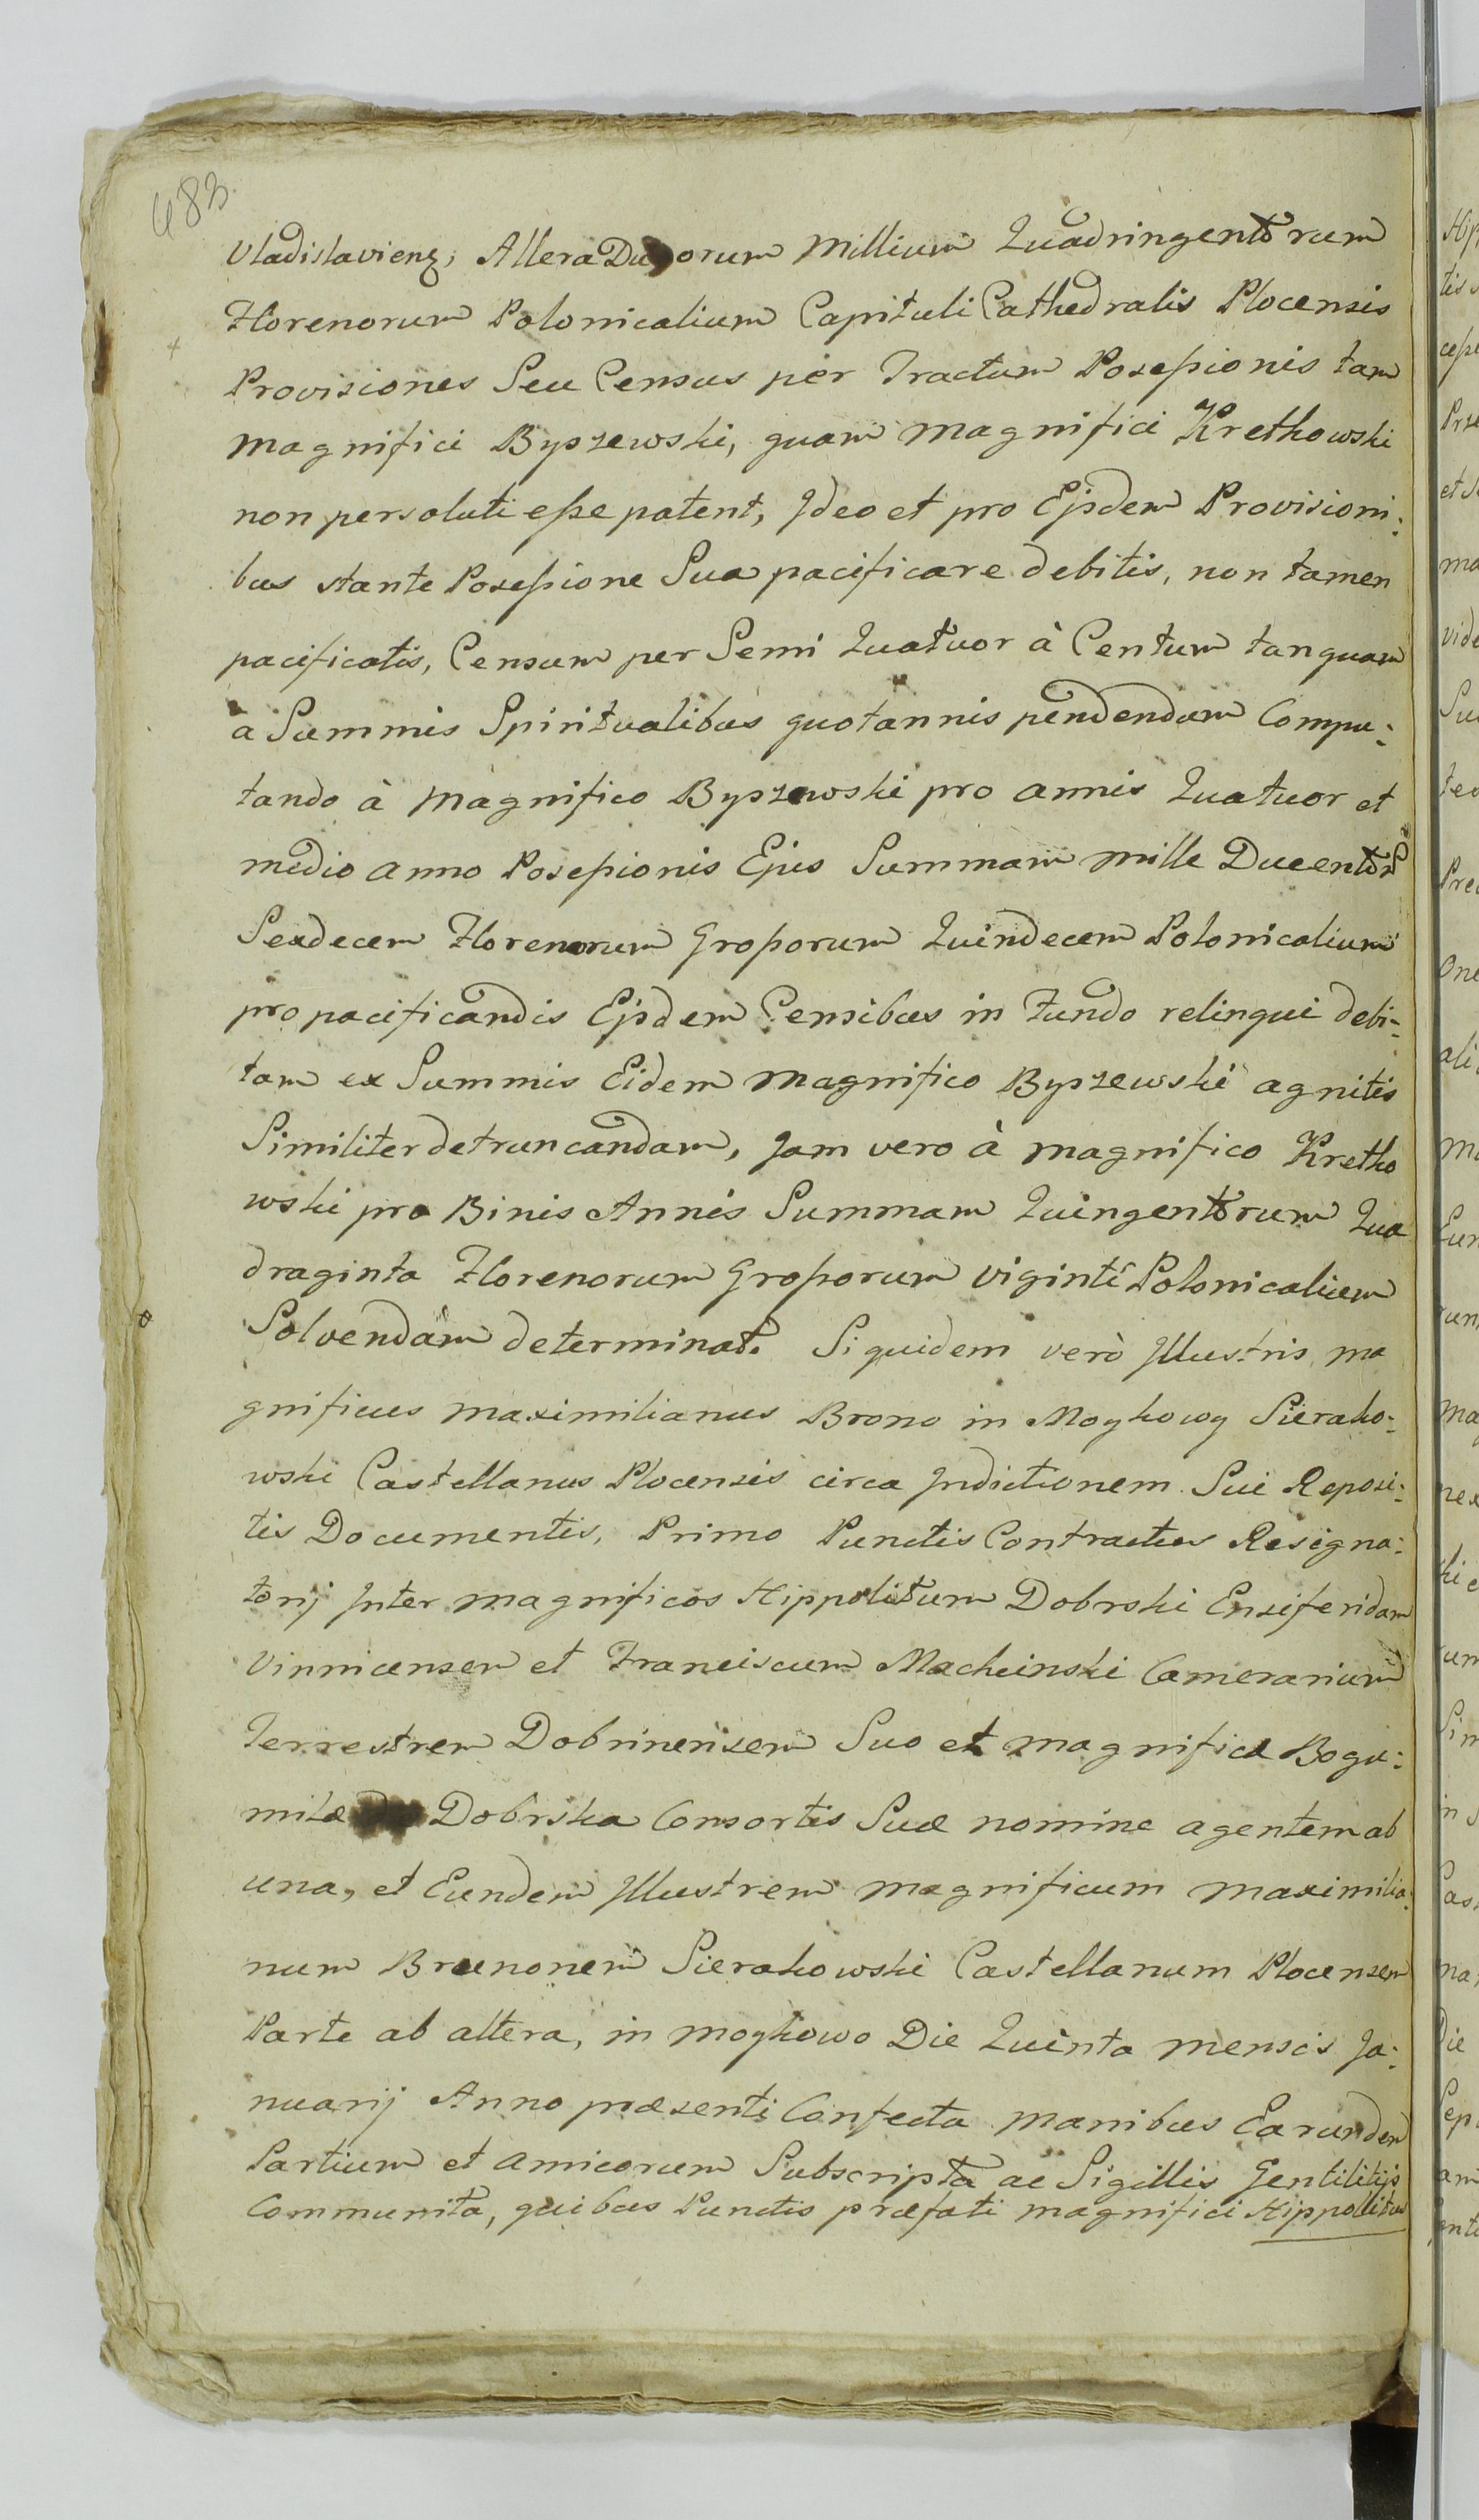 483.
Vladislavieng, Altera Duorum Millium Quadringentorum
Florenorum Polonicalium Capituli Cathedralis Plocensis
Provisiones Seu Census per Tractum Poseßionis tam
Magnifici Byszewski, quam Magnifici Kretkowski
non persoluti eße patent, Ideo et pro Ejsdem Provisioni-
bus stante Poseßione Sua pacificare debitis, non tamen
pacificatis, Censum per Semi Quatuor à Centum tanquam
a Summis Spiritualibus quotannis pendendum Compu-
tando à Magnifico Byszewski pro annis Quatuor et
medio anno Poseßionis Ejus Summam Mille Ducentor
Sexdecem Florenorum Großorum Quindecem Polonicalium
pro pacificandis Ejsdem Censibus in Fundo relinqui debi-
tam ex Summis Eidem Magnifico Byszewski agnitis
Similiter detruncandam, Jam vero à Magnifico Kretko
wski pro Binis Annis Summam Quingentorum Qua
draginta Florenorum Großorum viginti Polonicalium
Solvendam determinat. Siquidem verò Illustris Ma
gnificus Maximilianus Brono in Moykowy Sierako-
wski Castellanus Plocensis circa Indictionem Sui Reposi-
tis Documentis, Primo Punctis Contractus Resigna-
torij Inter Magnificos Hippolitum Dobrski Ensiferidam
Vinnicensem et Franciscum Macheinski Camerarium
Terrestrem Dobrinensem Suo et Magnificæ Bogu-
milæ Dobrska Consortis Suæ nomine agentem ab
una, et Eundem Illustrem Magnificum Maximilia-
num Brunonem Sierakowski Castellanum Plocensem
Parte ab altera, in Moykowo Die Quinta Mensis Ja-
nuarij Anno præsenti Confecta Manibus Earundem
Partium et Amicorum Subscripta ac Sigillis Gentilitijs
Communita, quibus Punctis præfati Magnifici Hippolitus